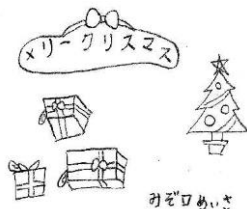 メリークリスマス
みぞ口めいさ